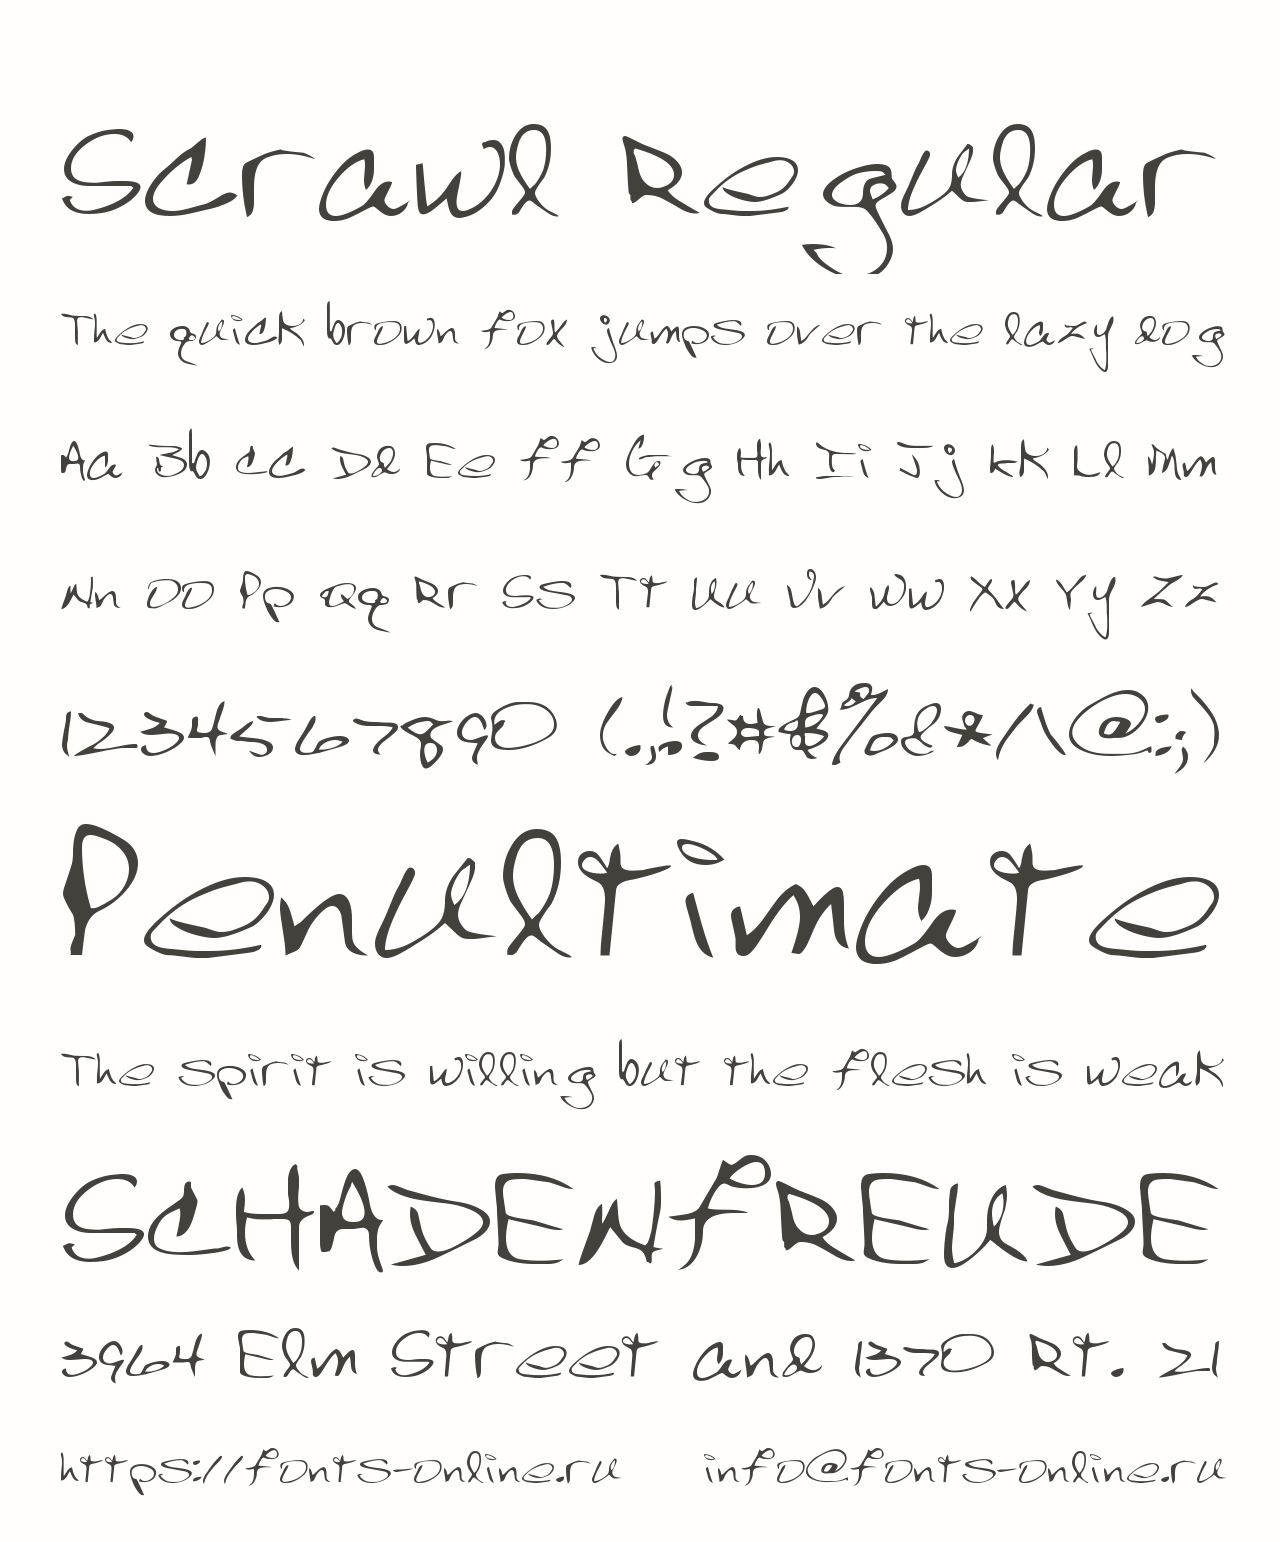 Scrawl Regular
The quick brown fox jumps over the lazy dog
Aa Bb Cc Dd Ee Ff Gg Hh Ii Jj Kk Ll Mm
Nn Oo Pp Qq Rr Ss Tt Uu Vv Ww Xx Yy Zz
1234567890 (.,!?#$%&*/\@:;)
Penultimate
The spirit is willing but the flesh is weak
SCHADENFREUDE
3964 Elm Street and 1370 Rt. 21
https://fonts-online.ru info@fonts-online.ru